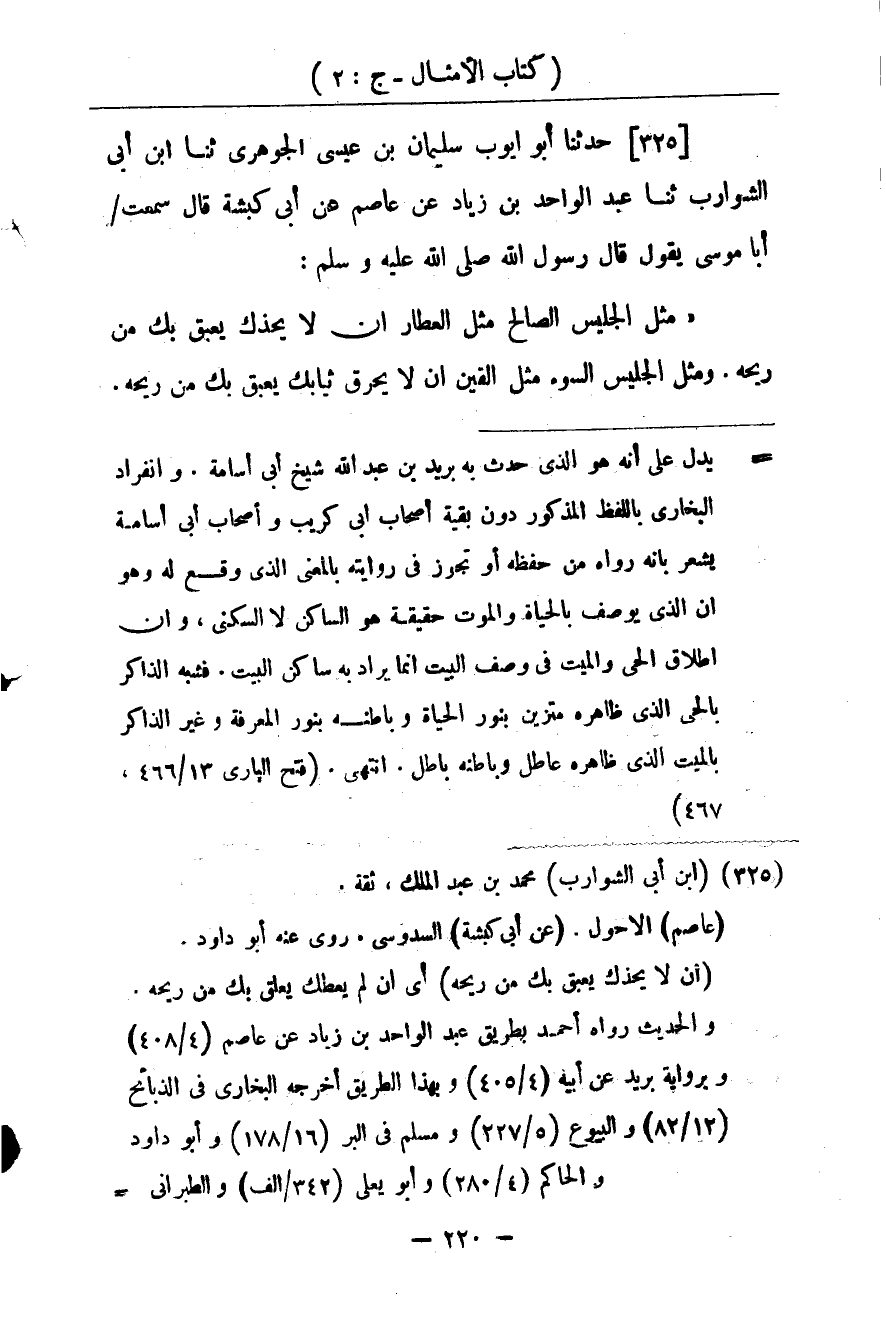 ( كتاب الأمثال - ج : ٢ )
[٣٢٥] حدثنا أبو ايوب سليمان بن عيسى الجوهرى ثنا ابن أبى
الشوارب ثنا عبد الواحد بن زياد عن عاصم عن أبى كبشة قال سمعت/
أبا موسى يقول قال رسول الله صلى الله عليه و سلم :
« مثل الجليس الصالح مثل العطار ان لا يحذك يعبق بك من
ريحه . ومثل الجليس السوء مثل القين ان لا يحرق ثيابك يعبق بك من ريحه .
= يدل على أنه هو الذى حدث به بريد بن عبد الله شيخ أبى أسامة . و انفراد
البخارى باللفظ المذكور دون بقية أصحاب ابى كريب و أصحاب أبى أسامة
يشعر بانه رواه من حفظه أو تجوز فى روايته بالمعنى الذى وقع له وهو
ان الذى يوصف بالحياة والموت حقيقة هو الساكن لا السكنى ، و ان
اطلاق الحى والميت فى وصف البيت انما يراد به ساكن البيت . فشبه الذاكر
بالحى الذى ظاهره متزين بنور الحياة و باطنه بنور المعرفة و غير الذاكر
بالميت الذى ظاهره عاطل وباطنه باطل . انتهى . (فتح البارى ٤٦٦/١٣ ،
٤٦٧)
(٣٢٥) (ابن أبى الشوارب) محمد بن عبد الملك ، ثقة .
(عاصم) الاحول . (عن أبى كبشة) السدوسى . روى عنه أبو داود .
(ان لا يحذك يعبق بك من ريحه) أى ان لم يعطك يعلق بك من ريحه .
و الحديث رواه أحمد بطريق عبد الواحد بن زياد عن عاصم (٤٠٨/٤)
و برواية بريد عن أبيه (٤٠٥/٤) و بهذا الطريق أخرجه البخارى فى الذبائح
(٨٢/١٢) و البيوع (٢٢٧/٥) و مسلم فى البر (١٧٨/١٦) و أبو داود
و الحاكم (٢٨٠/٤) و أبو يعلى (٣٤٢/الف) و الطبرانى =
— ٢٢٠ —